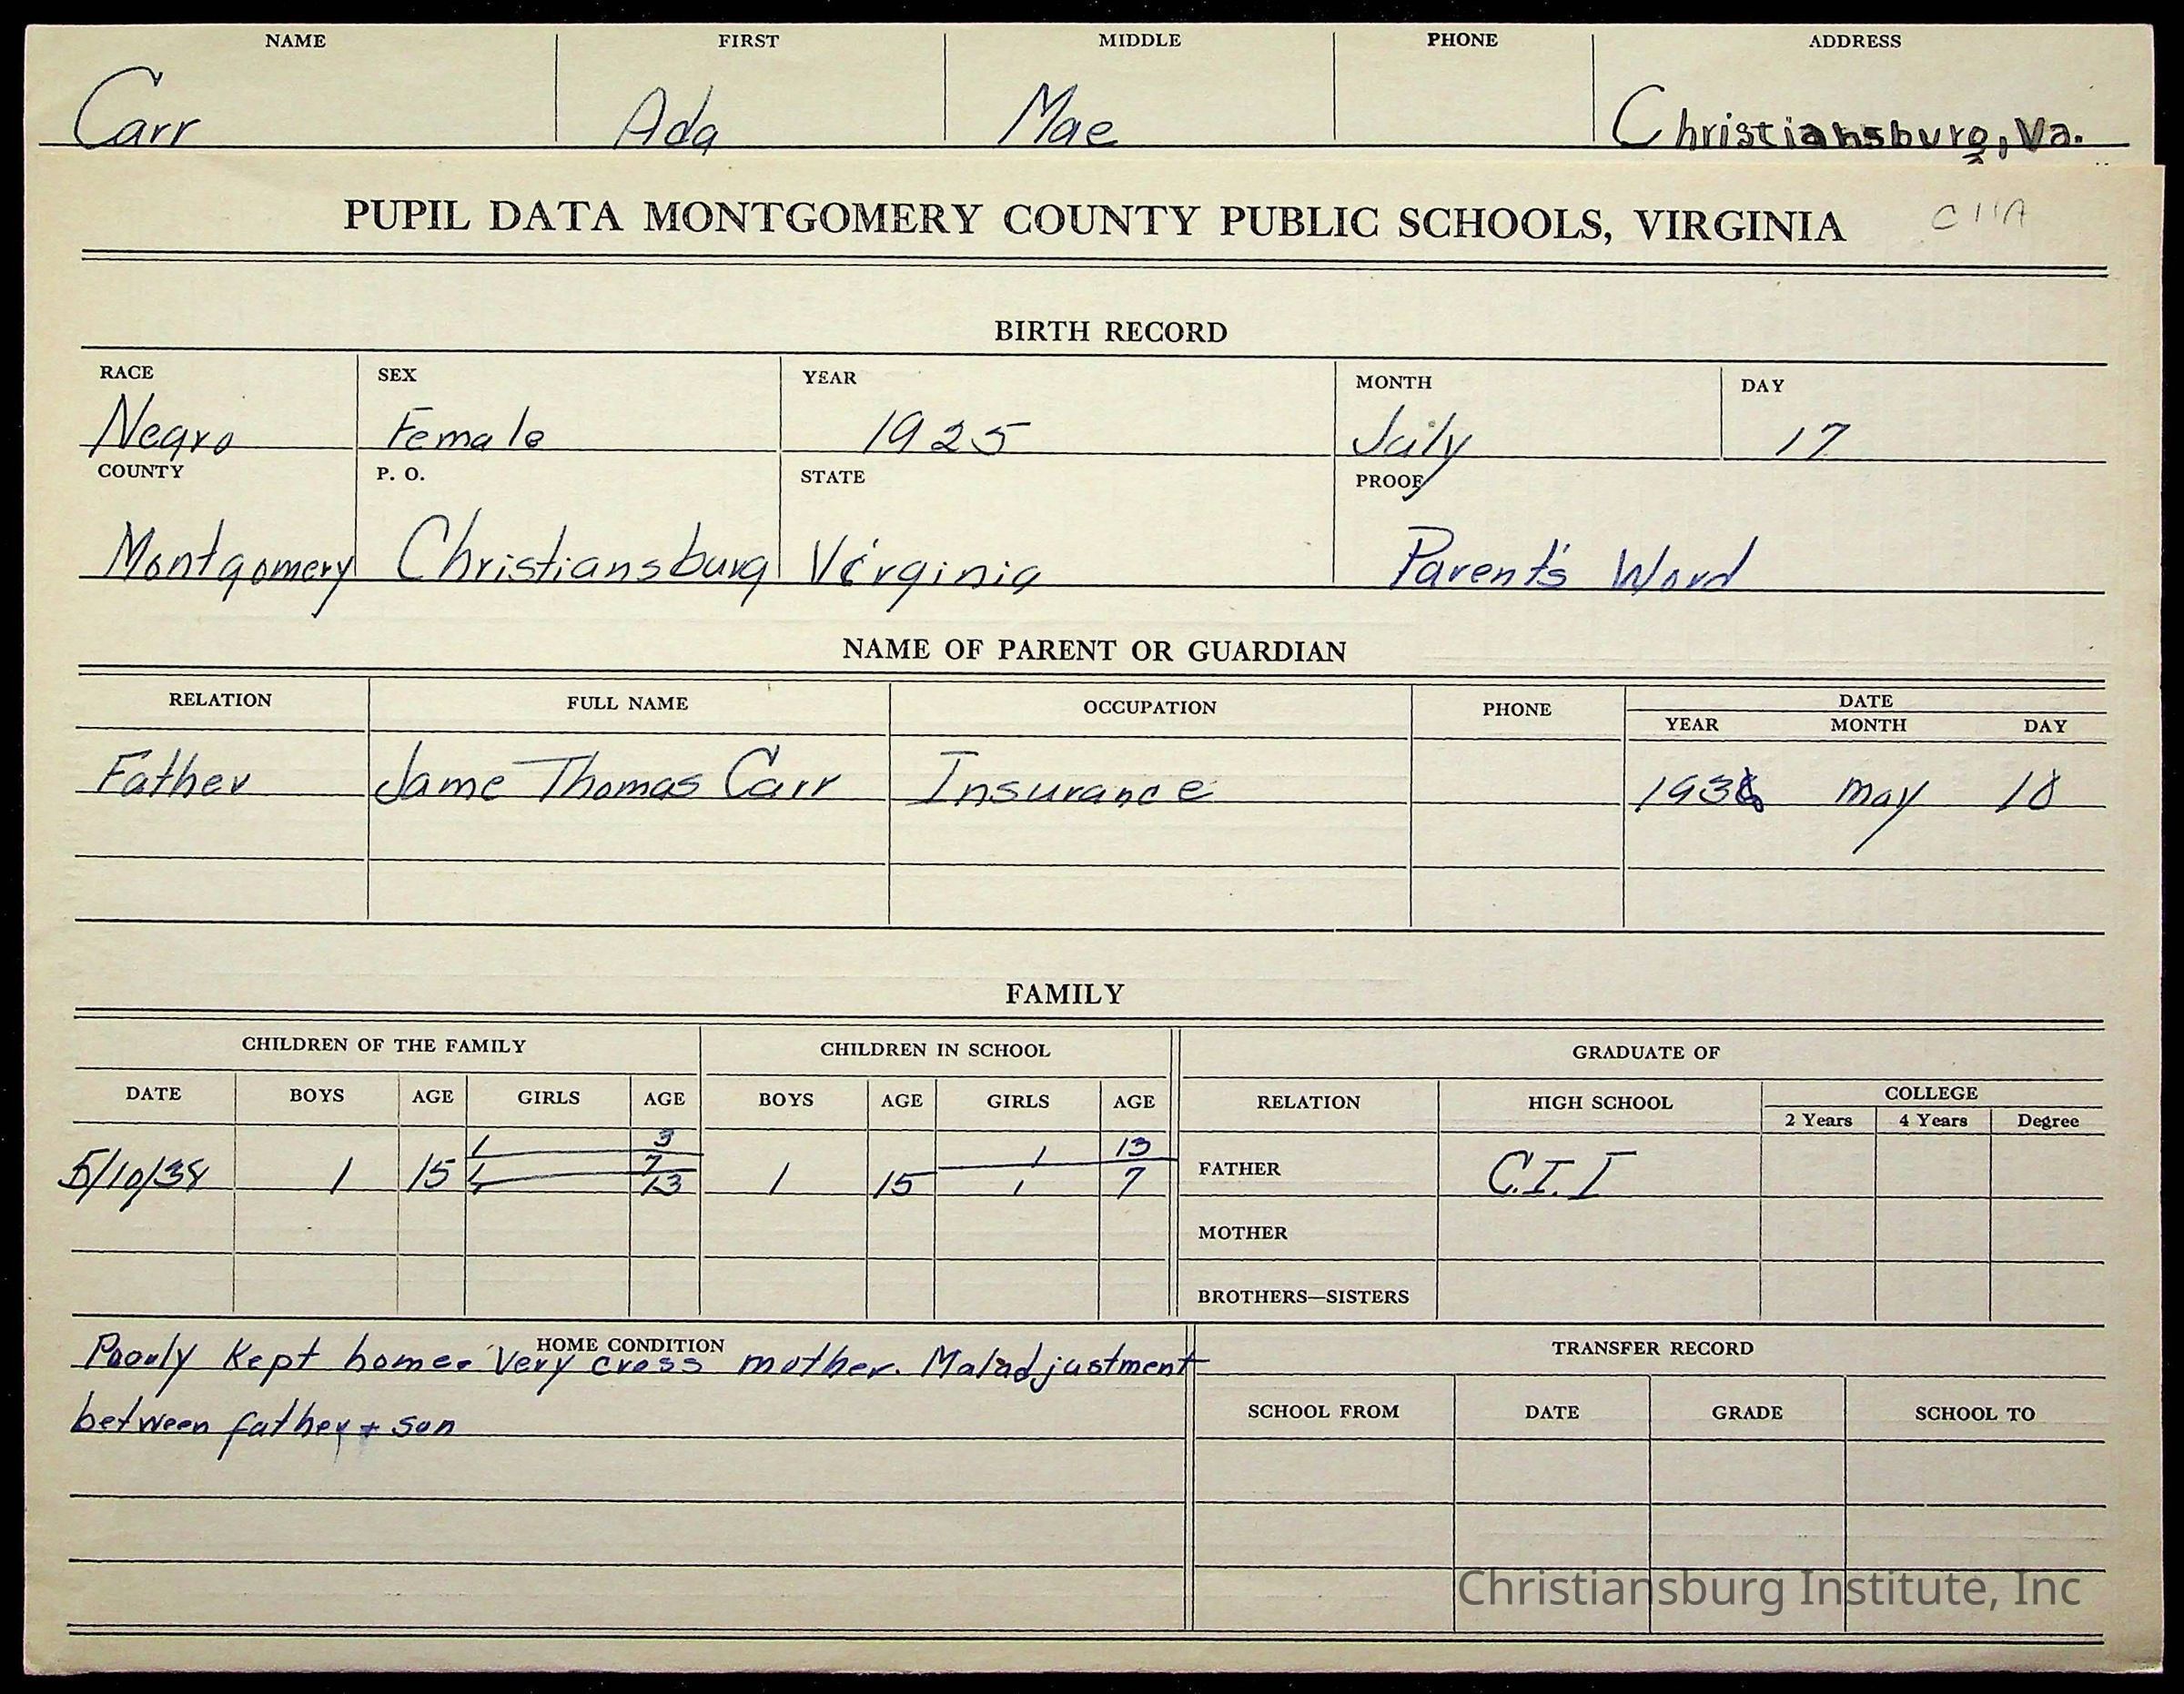 NAME FIRST MIDDLE PHONE ADDRESS
Carr Ada Mae Christiansburg, Va.
PUPIL DATA MONTGOMERY COUNTY PUBLIC SCHOOLS, VIRGINIA
BIRTH RECORD
RACE SEX YEAR MONTH DAY
Negro Female 1925 July 17
COUNTY P. O. STATE PROOF
Montgomery Christiansburg Virginia Parent's Word
NAME OF PARENT OR GUARDIAN
RELATION FULL NAME OCCUPATION PHONE DATE
YEAR MONTH DAY
Father Jame Thomas Carr Insurance May 10
FAMILY
CHILDREN OF THE FAMILY CHILDREN IN SCHOOL GRADUATE OF
DATE BOYS AGE GIRLS AGE BOYS AGE GIRLS AGE RELATION HIGH SCHOOL COLLEGE
2 Years 4 Years Degree
1 3 1 13
5/10/38 1 15 1 7 1 15 1 7 FATHER C.I.I
1 13
MOTHER
BROTHERS—SISTERS
HOME CONDITION TRANSFER RECORD
Poorly Kept home. Very cross mother. Maladjustment
between father + son
SCHOOL FROM DATE GRADE SCHOOL TO
Christiansburg Institute, Inc